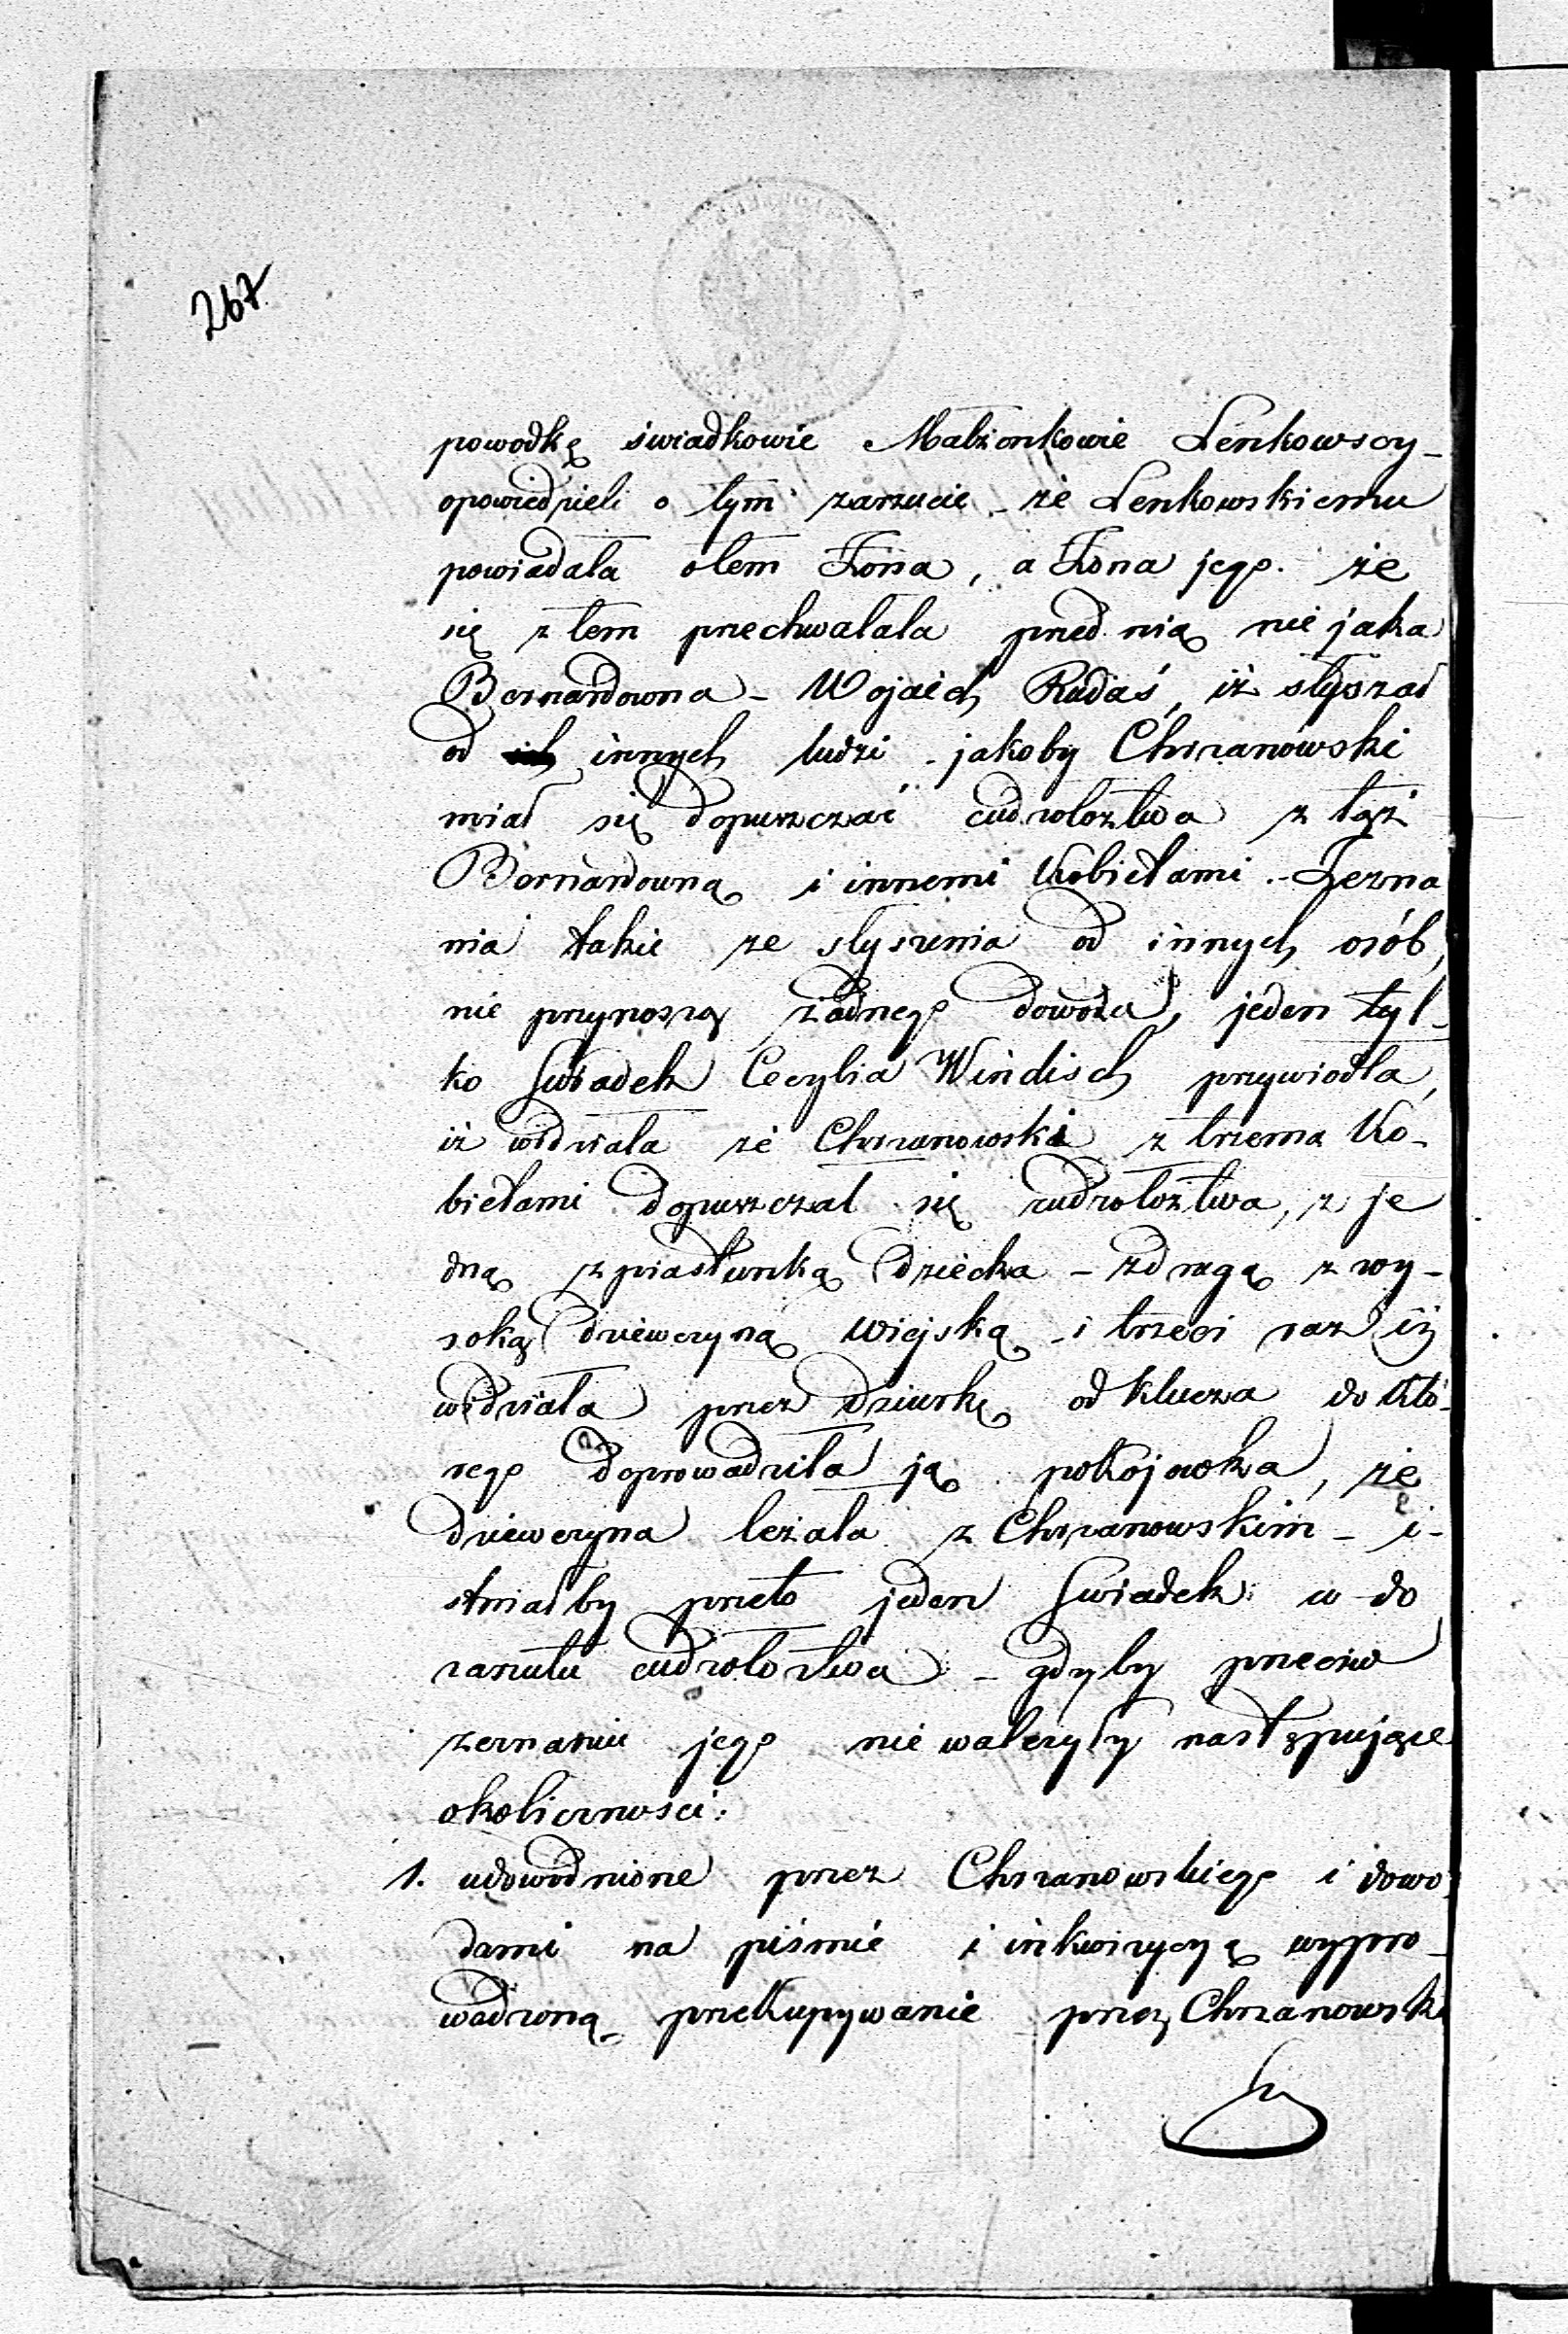 267
powodkę świadkowie Małżonkowie Lenkowscy_
opowiedzieli o tym zarzucie _ że Lenkowskiemu
powiadała otem Żona, a Żona jego. że
się z tem przechwalała przed nią nie jaka
Bernardowna _ Wojciech Rudaś, iż słyszał
od innych ludzi _ jakoby Chrzanowski
miał się dopuszczać cudzołoztwa z tąż
Bernardowną i innemi Kobietami. _ Zezna
nia takie ze słyszenia od innych osób,
nie przynoszą żadnego dowodu, jeden tyl_
ko Swiadek Cecylia Windisch przywiodła,
iż widziała że Chrzanowski z trzema Ko_
bietami dopuszczal się cudzołoztwa, z je
dną z piastunką dziecka _ z drugą z wy_
soką dziewczyną wiejską _ i trzeci raz iż
widziała przez dziurkę od klucza do któ_
rego doprowadziła ją pokojowka, że
dziewczyna leżala z Chrzanowskim _ i_
stniałby przeto jeden Swiadek w do
zarzutu cudzołoztwa _ gdyby przeciw
zeznaniu jego nie walczyły następujące
okoliczności:
1. udowodnione przez Chrzanowskiego i dowo_
dami na piśmie i inkwizycyą wypro_
wadzoną _ przekupywanie przez Chrzanowski